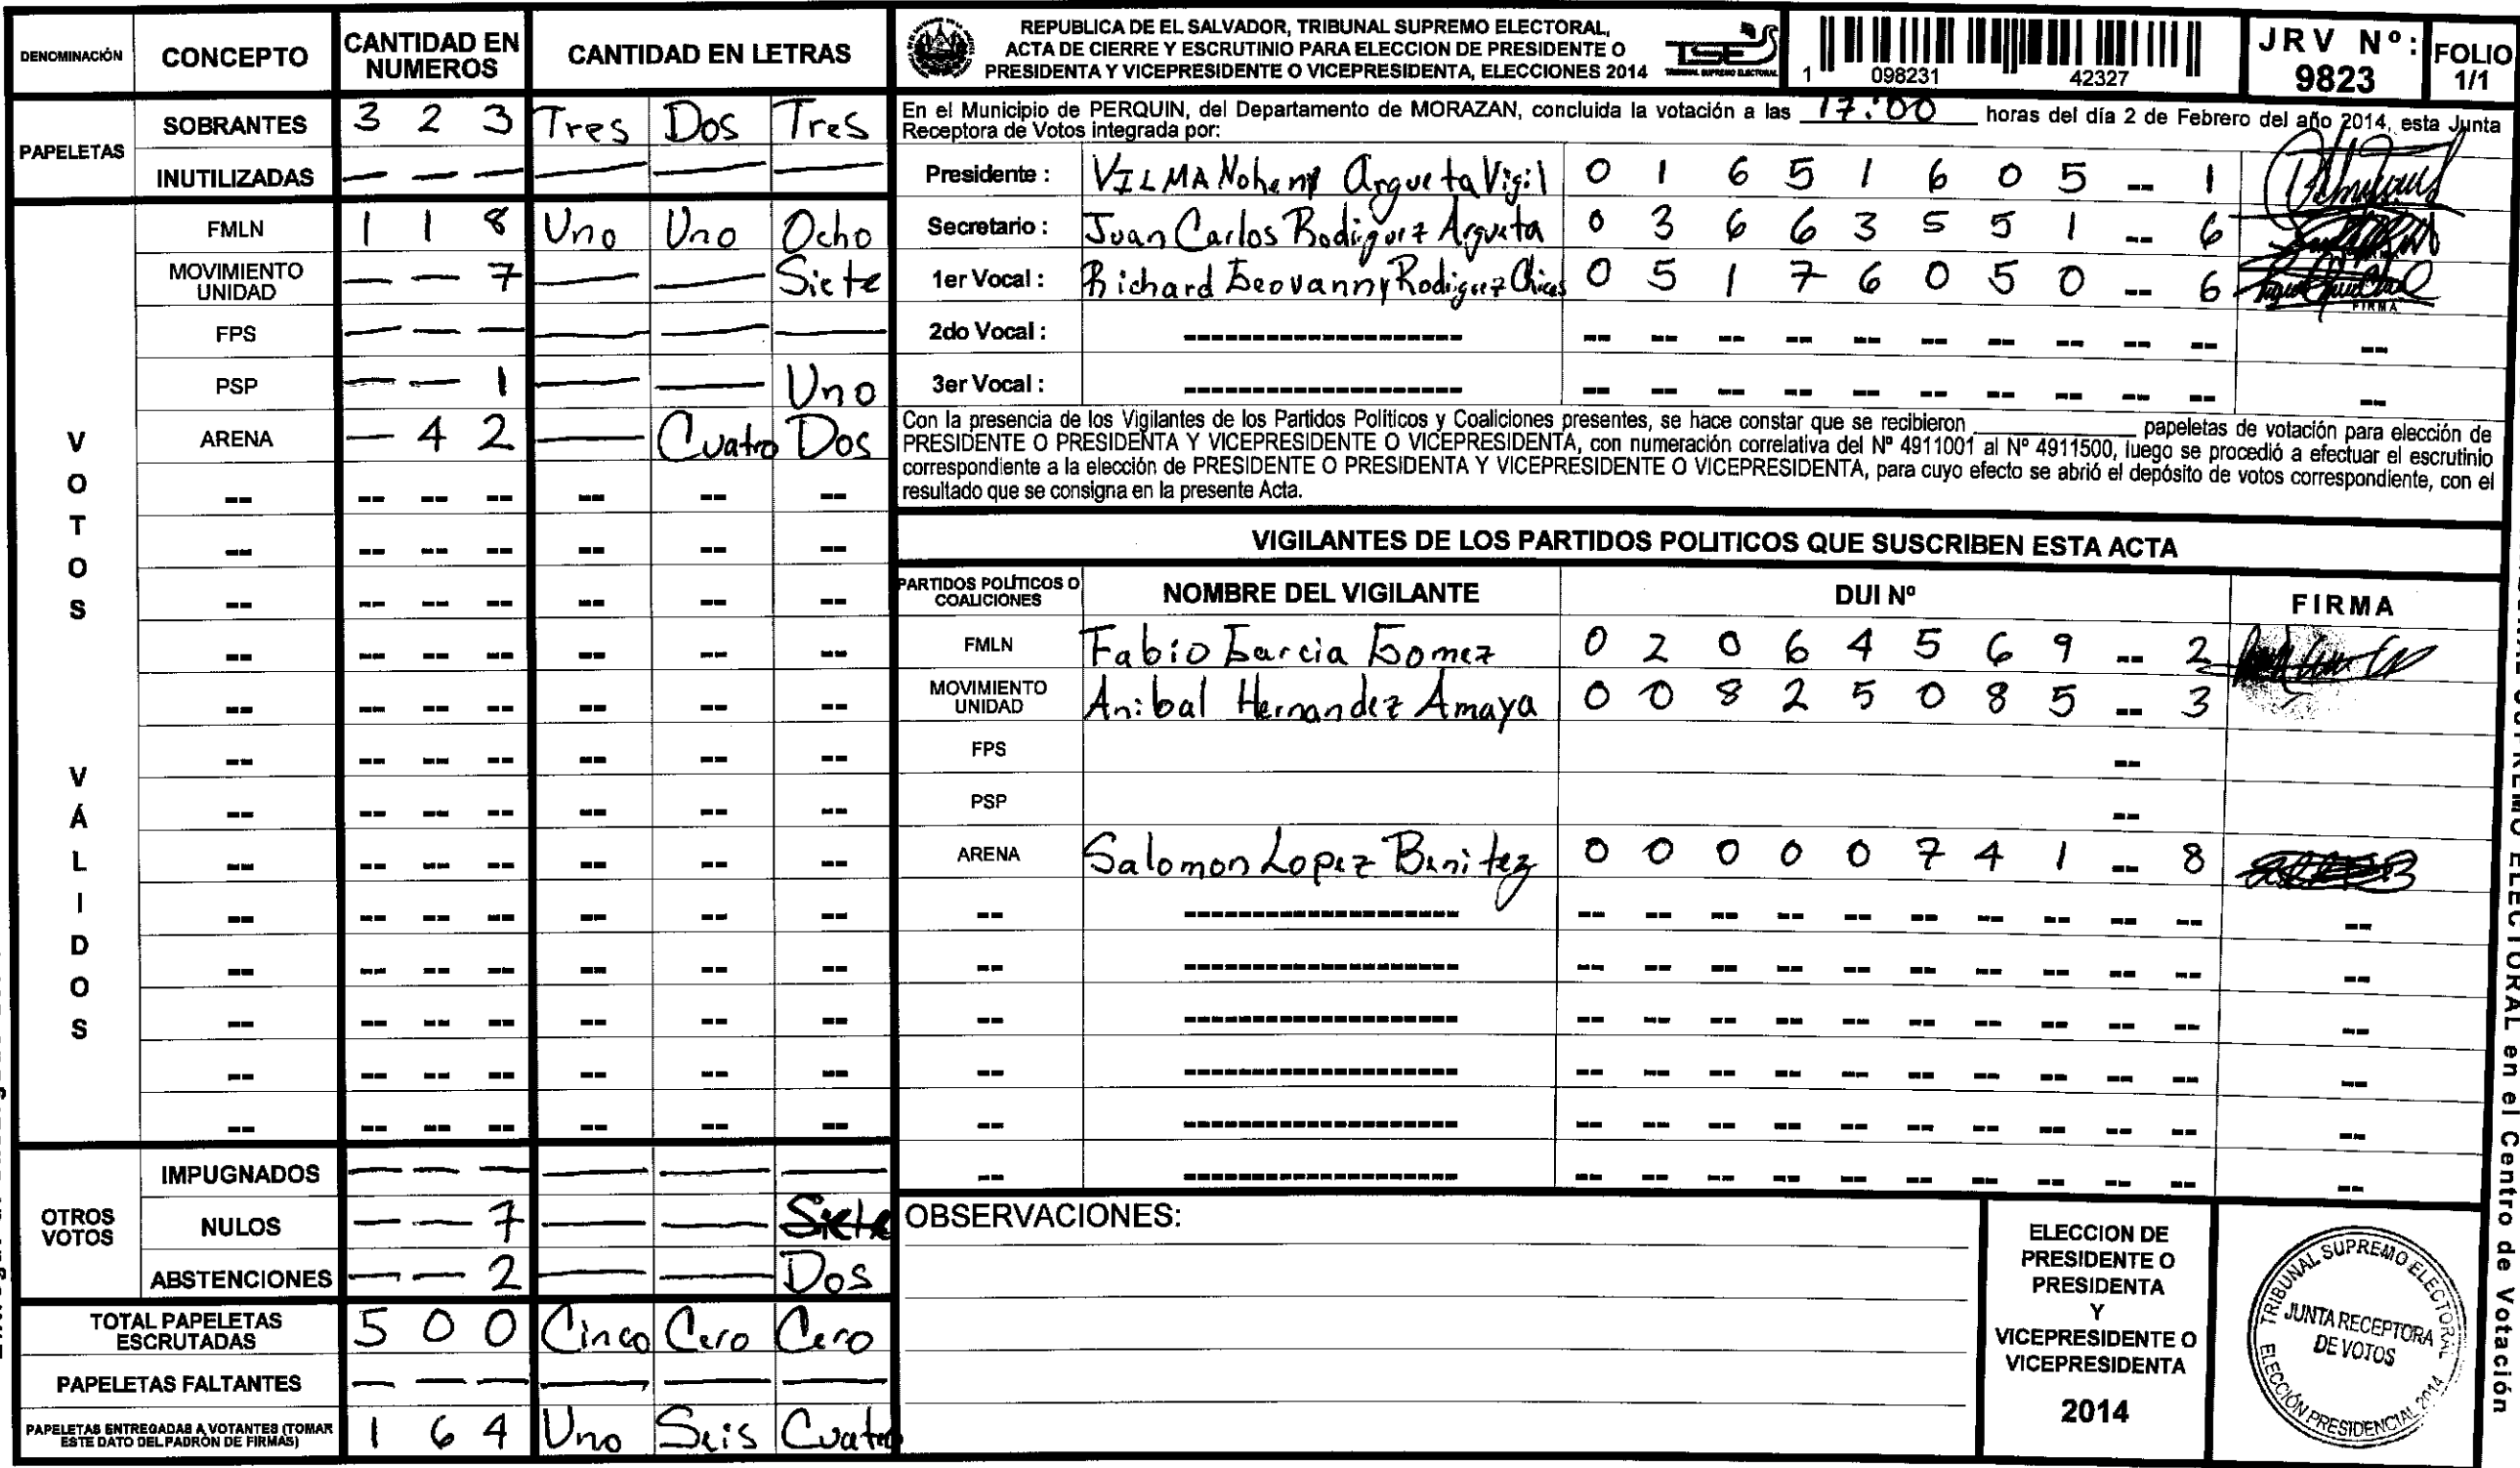 DENOMINACIÓN CONCEPTO CANTIDAD EN NUMEROS CANTIDAD EN LETRAS
PAPELETAS
SOBRANTES 3 2 3 Tres Dos Tres
INUTILIZADAS — — — — — —
VOTOS VÁLIDOS
FMLN 1 1 8 Uno Uno Ocho
MOVIMIENTO UNIDAD — — 7 — — Siete
FPS — — — — — —
PSP — — 1 — — Uno
ARENA — 4 2 — Cuatro Dos
OTROS VOTOS
IMPUGNADOS — — — — — —
NULOS — — 7 — — Siete
ABSTENCIONES — — 2 — — Dos
TOTAL PAPELETAS ESCRUTADAS 5 0 0 Cinco Cero Cero
PAPELETAS FALTANTES — — — — — —
PAPELETAS ENTREGADAS A VOTANTES (TOMAR ESTE DATO DEL PADRÓN DE FIRMAS) 1 6 4 Uno Seis Cuatro
REPUBLICA DE EL SALVADOR, TRIBUNAL SUPREMO ELECTORAL,
ACTA DE CIERRE Y ESCRUTINIO PARA ELECCION DE PRESIDENTE O
PRESIDENTA Y VICEPRESIDENTE O VICEPRESIDENTA, ELECCIONES 2014
TSE
TRIBUNAL SUPREMO ELECTORAL
1 098231 42327
JRV Nº: 9823
FOLIO 1/1
En el Municipio de PERQUIN, del Departamento de MORAZAN, concluida la votación a las 17:00 horas del día 2 de Febrero del año 2014, esta Junta
Receptora de Votos integrada por:
Presidente : VILMA Nohemy Argueta Vigil 0 1 6 5 1 6 0 5 -- 1
Secretario : Juan Carlos Rodiguez Argueta 0 3 6 6 3 5 5 1 -- 6
1er Vocal : Richard Geovanny Rodiguez Chicas 0 5 1 7 6 0 5 0 -- 6
FIRMA
2do Vocal :
3er Vocal :
Con la presencia de los Vigilantes de los Partidos Políticos y Coaliciones presentes, se hace constar que se recibieron ________ papeletas de votación para elección de
PRESIDENTE O PRESIDENTA Y VICEPRESIDENTE O VICEPRESIDENTA, con numeración correlativa del Nº 4911001 al Nº 4911500, luego se procedió a efectuar el escrutinio
correspondiente a la elección de PRESIDENTE O PRESIDENTA Y VICEPRESIDENTE O VICEPRESIDENTA, para cuyo efecto se abrió el depósito de votos correspondiente, con el
resultado que se consigna en la presente Acta.
VIGILANTES DE LOS PARTIDOS POLITICOS QUE SUSCRIBEN ESTA ACTA
PARTIDOS POLÍTICOS O COALICIONES NOMBRE DEL VIGILANTE DUI Nº FIRMA
FMLN Fabio Garcia Gomez 0 2 0 6 4 5 6 9 -- 2
MOVIMIENTO UNIDAD Anibal Hernandez Amaya 0 0 8 2 5 0 8 5 -- 3
FPS --
PSP --
ARENA Salomon Lopez Benitez 0 0 0 0 0 7 4 1 -- 8
OBSERVACIONES:
ELECCION DE
PRESIDENTE O
PRESIDENTA
Y
VICEPRESIDENTE O
VICEPRESIDENTA
2014
TRIBUNAL SUPREMO ELECTORAL
JUNTA RECEPTORA
DE VOTOS
ELECCIÓN PRESIDENCIAL 2014
ELECTORAL en el Centro de Votación